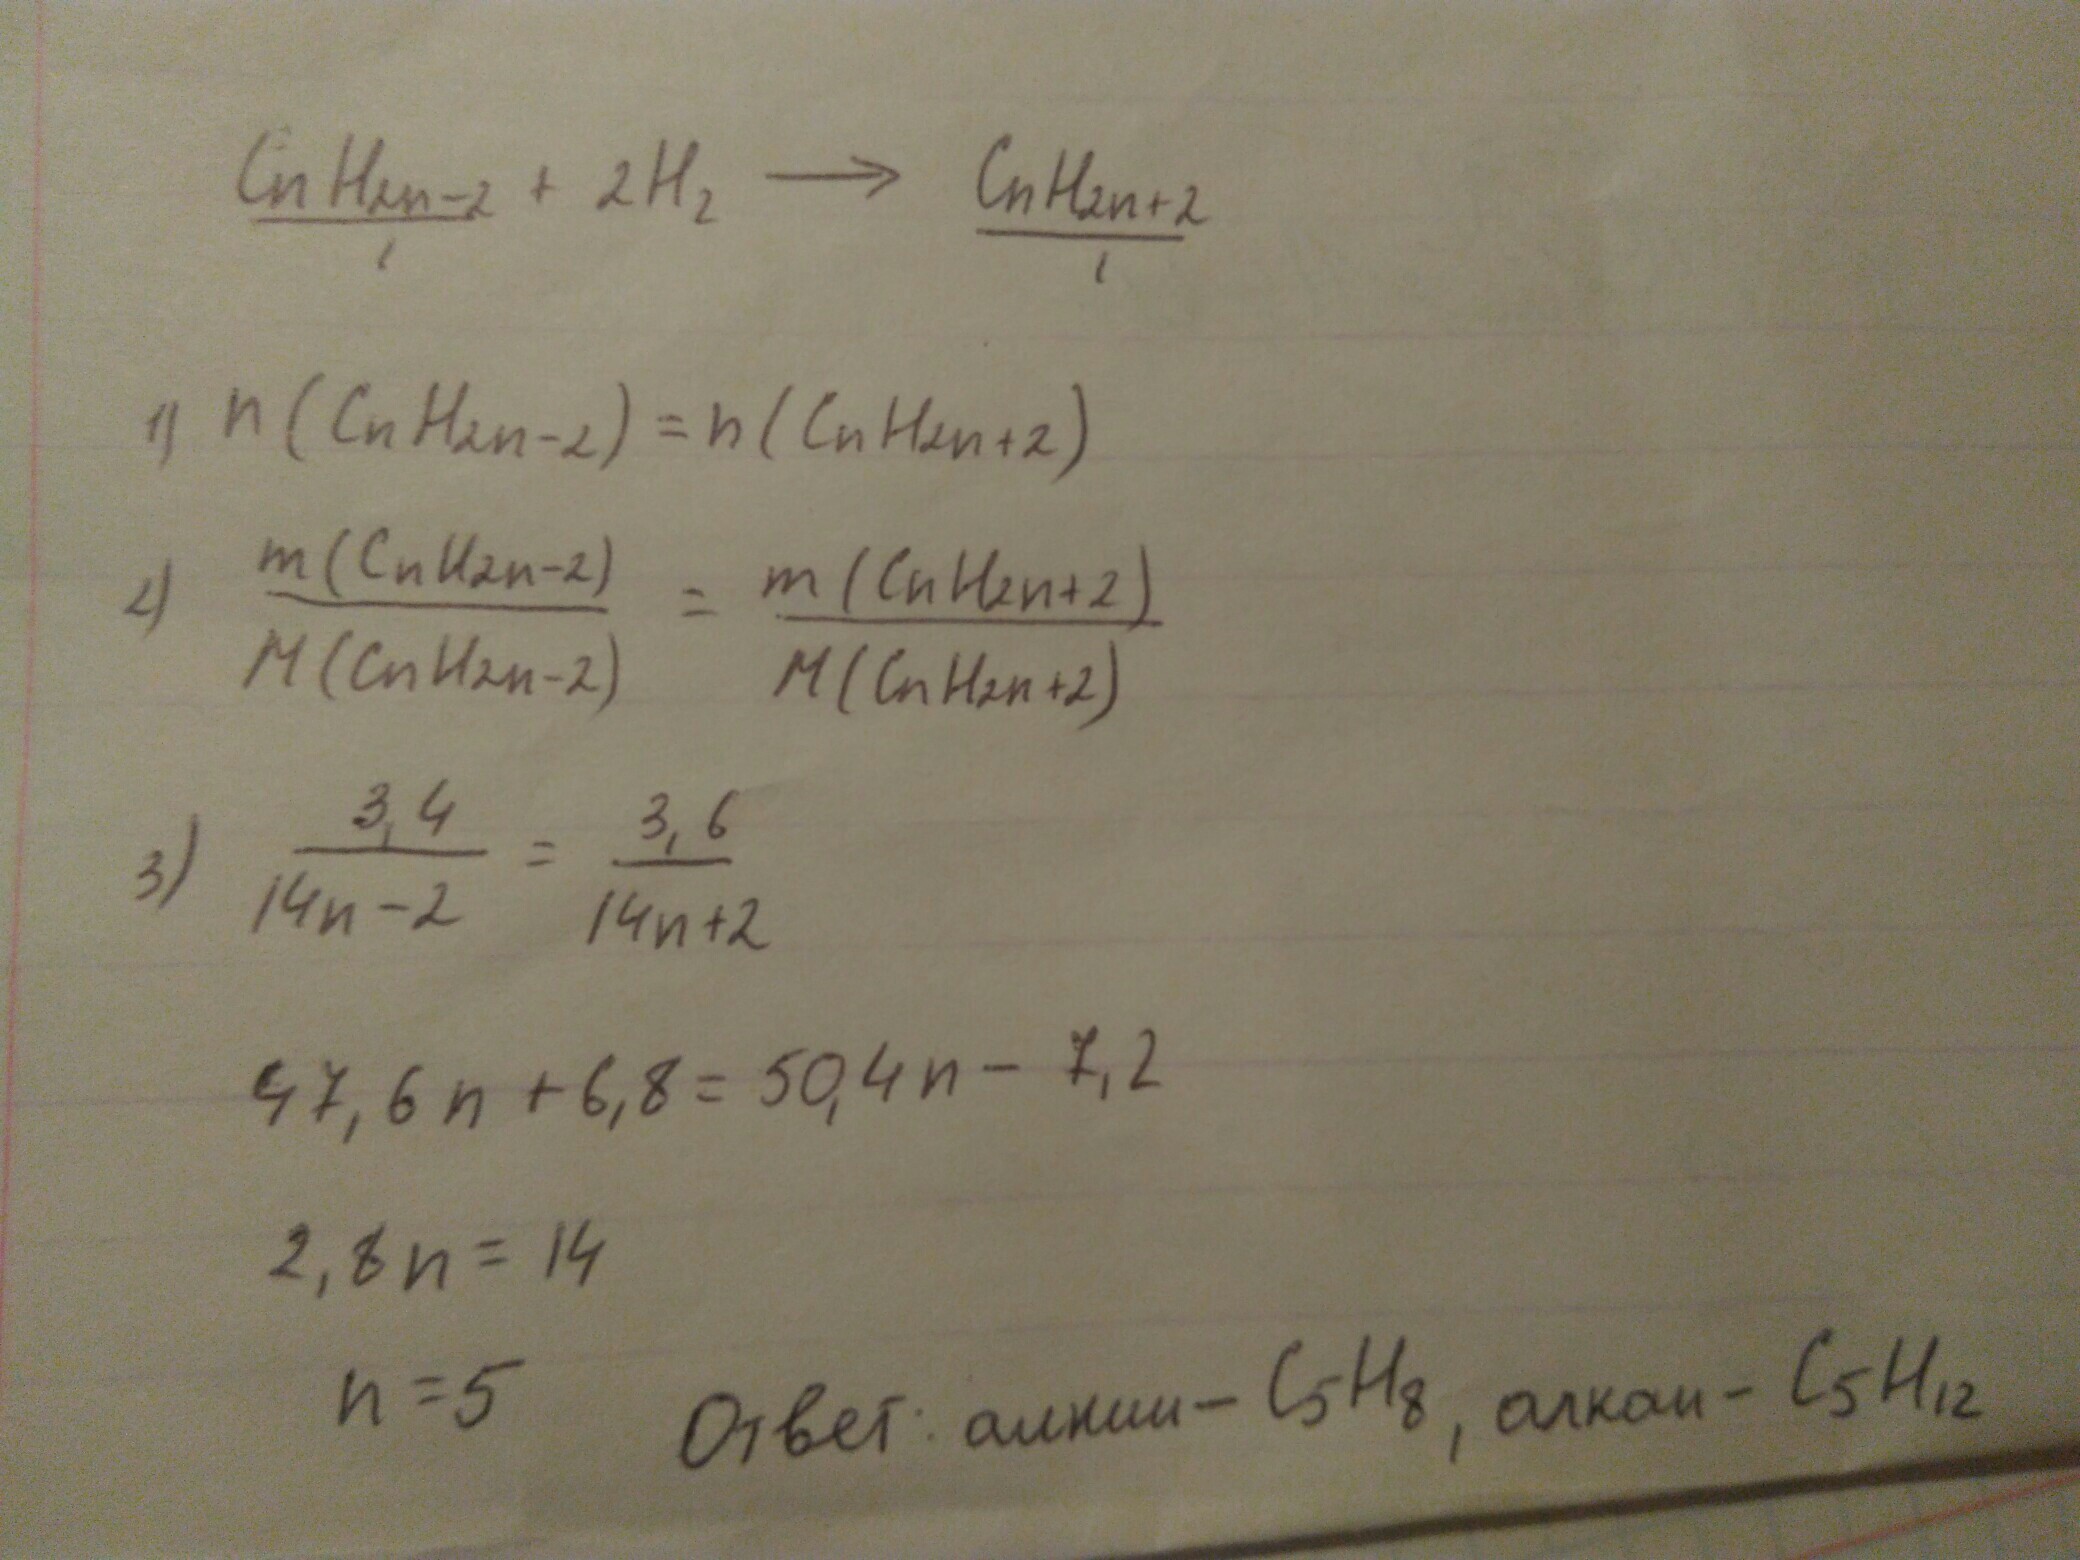 CnH2n-2 + 2H2 → CnH2n+2
1 1
1) n(CnH2n-2) = n(CnH2n+2)
2) m(CnH2n-2) / M(CnH2n-2) = m(CnH2n+2) / M(CnH2n+2)
3) 3,4 / 14n-2 = 3,6 / 14n+2
47,6n + 6,8 = 50,4n - 7,2
2,8n = 14
n = 5 Ответ: алкин - C5H8, алкан - C5H12